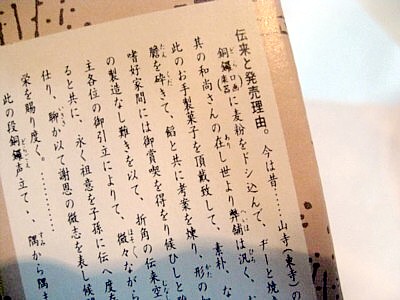 伝来と発売理由。 今は昔……山寺（東寺）の
銅鑼（楽器）に麦粉をドシ込んで、ヂーと焼き
其の和尚さんの在し世より弊舗は汎く、
此のお手製菓子を頂戴致して、素朴、な
膽を砕きて、餡と共に考案を煉り、形の
嗜好家間には御賞喫を得をり候ひしと
の製造なし難きを以て、折角の伝来空
主各位の御引立によりて、微々ながら
ると共に、永く祖意を子孫に伝へ度
り、聊か以て謝恩の微志を表し候
栄を賜り度く。………
此の段銅鑼声立て、、隅から隅ま